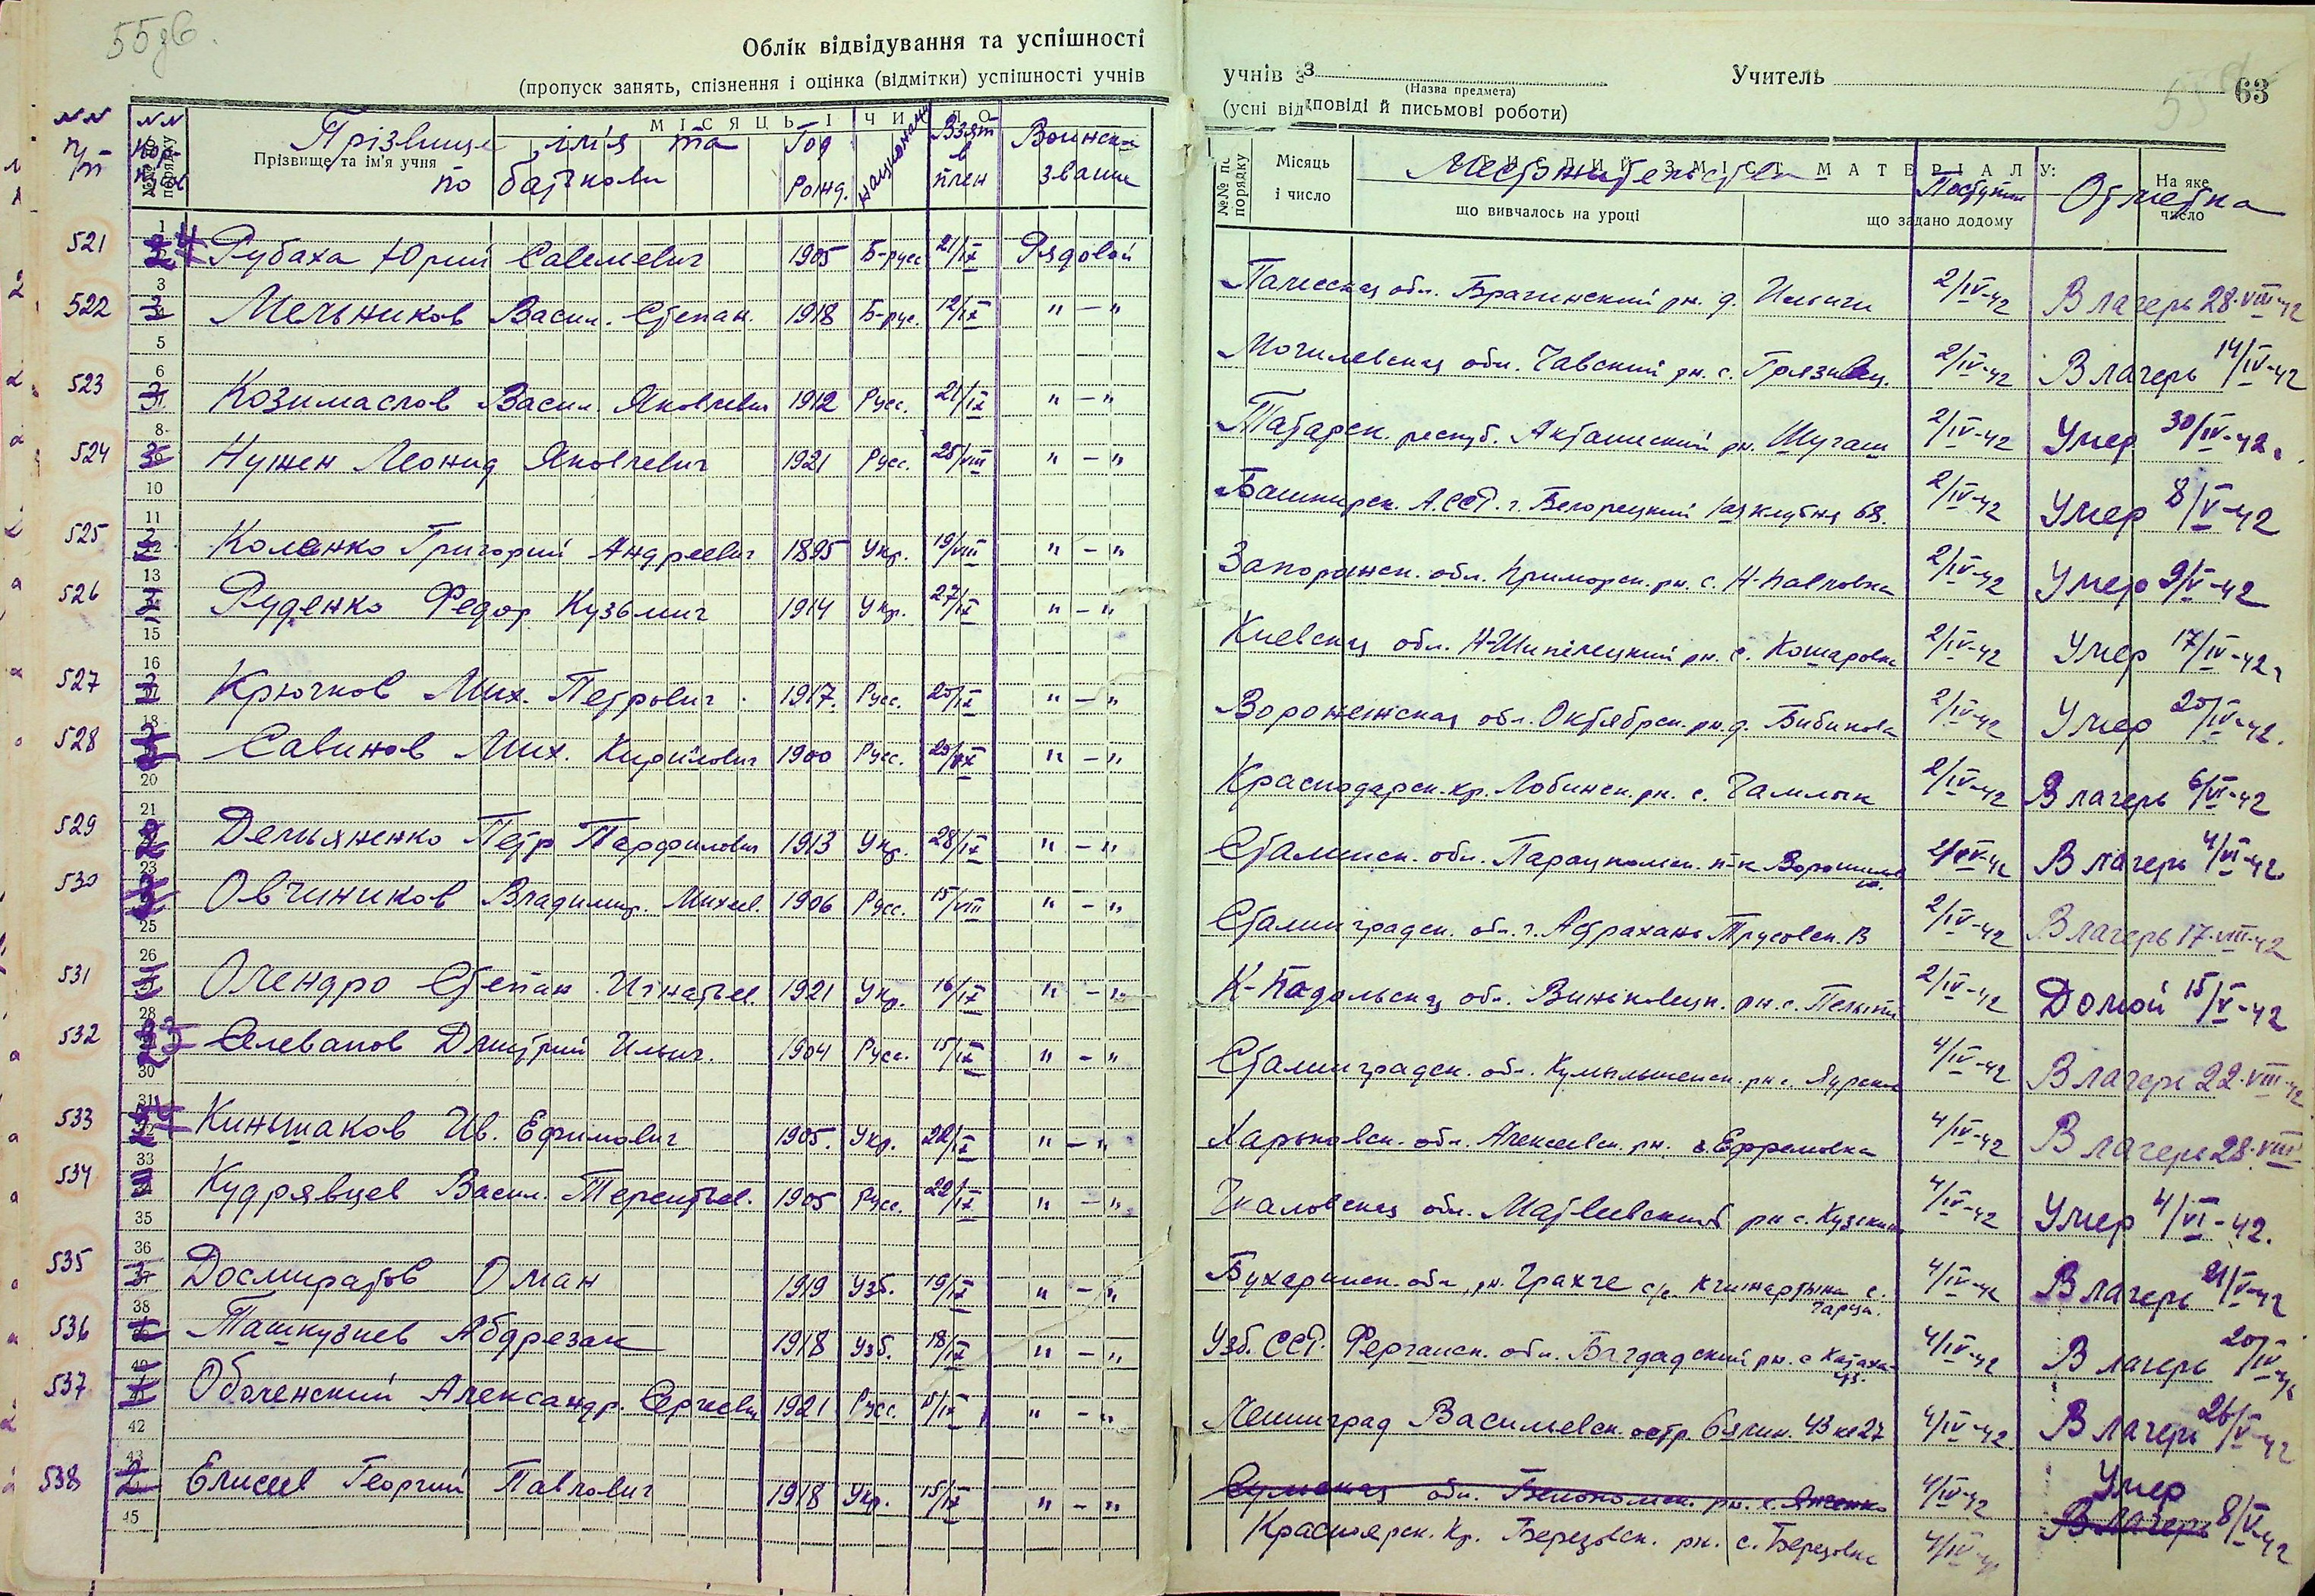 55зв.
Облік відвідування та успішності
(пропуск занять, спізнення і оцінка (відмітки) успішності учнів
учнів з
(Назва предмета)
Учитель
63
(усні відповіді й письмові роботи)
NN п/п
NN
№№ по порядку
Прізвище та ім'я учня
Прізвище ім'я та по батькови
МІСЯЦЬ І ЧИСЛО
Год рожд.
национальн
Взят в плен
Воинск. звание
№№ по порядку
Місяць і число
МАТЕРІАЛУ:
Местожительство
що вивчалось на уроці
що задано додому
Поступил
Отметка
На яке число
521 Рубаха Юрий Савельевич 1905 Б-русс 21/IX Рядовой Палесская обл. Брагинский рн. д. 2/IV-42 В лагерь 28.VIII-42
522 Мельников Васил. Степан. 1918 Б-рус. 12/IX "-" Могилевская обл. Чавский рн. с. Грязивец. 2/IV-42 В лагерь 14/IV-42
523 Козимаслов Васил. Яковлевич 1912 Русс. 21/IX "-" Татарск. респуб. Акташский рн. Шугаш 2/IV-42 Умер 30/IV-42.
524 Нужен Леонид Яковлевич 1921 Русс. 25/VIII "-" Башкирск. А.ССР. г. Белорецкий 1ая клубня 68. 2/IV-42 Умер 8/V-42
525 Коленко Григорий Андреевич 1895 Укр. 19/VIII "-" Запорожск. обл. Приморск. рн. с. Н-Павловка 2/IV-42 Умер 9/V-42
526 Руденко Федор Кузьмич 1914 Укр. 27/IX "-" Киевская обл. Н-Шипелецкий рн. с. Кошаровка 2/IV-42 Умер 17/IV-42.
527 Крючков Мих. Петрович 1917. Русс. 20/IX "-" Воронежская обл. Октябрск. рн. д. Бибиково 2/IV-42 Умер 20/IV-42.
528 Савинов Мих. Кирилович 1900 Русс. 20/IX "-" Краснодарск. кр. Лобинск. рн. с. Чамлык 2/IV-42 В лагерь 6/VI-42
529 Демьяненко Петр Парфилович 1913 Укр. 28/IX "-" Сталинск. обл. 2/IV-42 В лагерь 4/VI-42
530 Овчиников Владимир. Михеев. 1906 Русс. 15/VIII "-" Сталинградск. обл. г. Астрахань Трусовск. 13 2/IV-42 В лагерь 17.VIII-42
531 Олендро Степан Игнатьев. 1921 Укр. 16/IX "-" К-Подольская обл. Виньковецк. рн. с. 2/IV-42 Домой 15/V-42
532 Селеванов Дмитрий Ильич. 1904 Русс. 15/IX "-" Сталинградск. обл. Кумылженск. рн с. 4/IV-42 В лагерь 22.VIII-42
533 Киньшаков Ив. Ефимович 1905. Укр. 22/IX "-" Харьковск. обл. Алексеевск. рн. с. Ефремовка 4/IV-42 В лагерь 28.VIII
534 Кудрявцев Васил. Терентьев. 1905 Русс. 22/IX "-" Чкаловская обл. Матвеевский рн с. 4/IV-42 Умер 4/VI-42.
535 Досмиратов Оман 1919 Узб. 19/IX "-" Бухаринск. обл. рн. с/с 4/IV-42 В лагерь 21/V-42
536 Ташкузиев Абдрезак 1918 Узб. 18/IX "-" Узб. ССР. Ферганск. обл. Багдадский рн. с 4/IV-42 В лагерь 20/IV-42
537 Оболенский Александр. Сергеевич 1921 Русс. 11/IX "-" Ленинград Васильевск. остр 6я лин. 43 кв 27 4/IV-42 В лагерь 26/V-42
538 Елисеев Георгий Павлович 1918 Укр. 15/IX "-" Сумская обл. Белопольск. рн. с. Янченко 4/IV-42 Умер
Красноярск. Кр. Березовск. рн. с. Березовка 4/IV-42 В лагерь 8/V-42